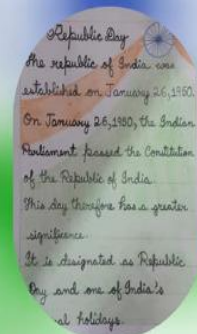 Republic Day
the republic of India was
established on January 26, 1950.
On January 26, 1950, the Indian
Parliament passed the Constitution
of the Republic of India.
This day therefore has a greater
significence.
It is designated as Republic
Day and one of India's
al holidays.